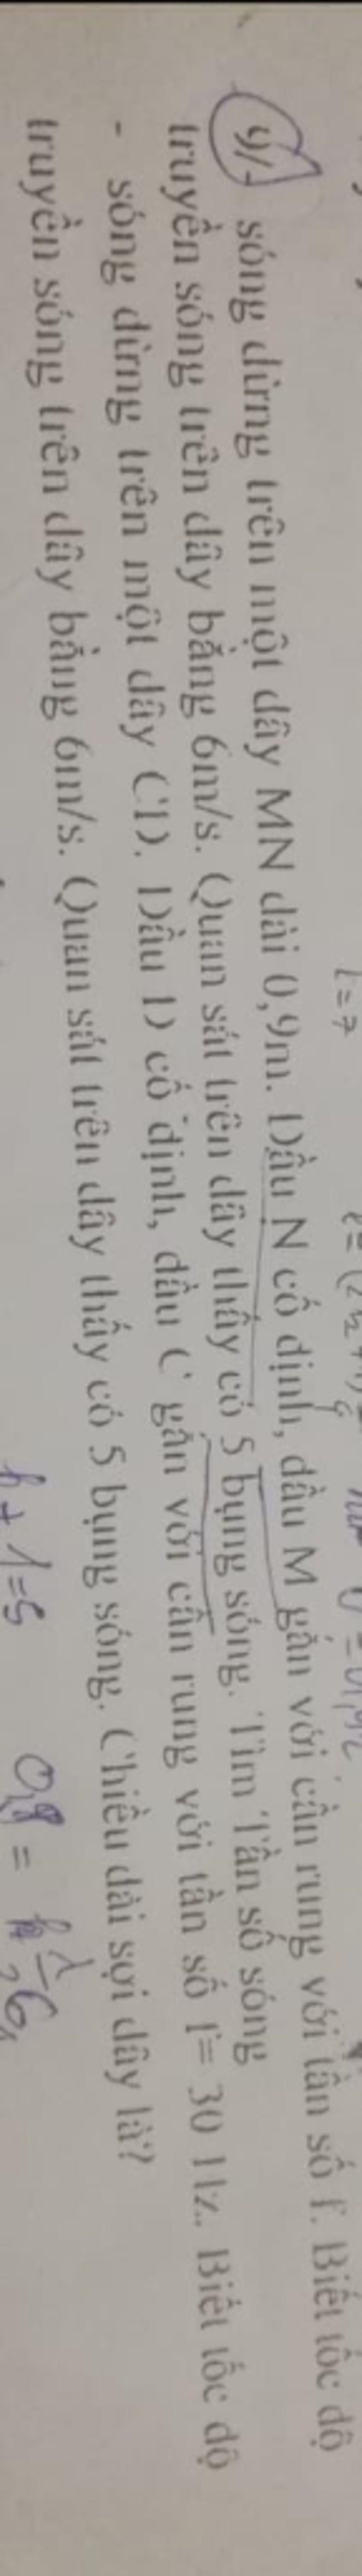 l = 7
9/- sóng dừng trên một dây MN dài 0,9m. Đầu N cố định, đầu M gắn với cần rung với tần số f. Biết tốc độ
truyền sóng trên dây bằng 6m/s. Quan sát trên dây thấy có 5 bụng sóng. Tìm Tần số sóng
- sóng dừng trên một dây CD. Đầu D cố định, đầu C gắn với cần rung với tần số f = 30 Hz. Biết tốc độ
truyền sóng trên dây bằng 6m/s. Quan sát trên dây thấy có 5 bụng sóng. Chiều dài sợi dây là?
k + 1 = 5